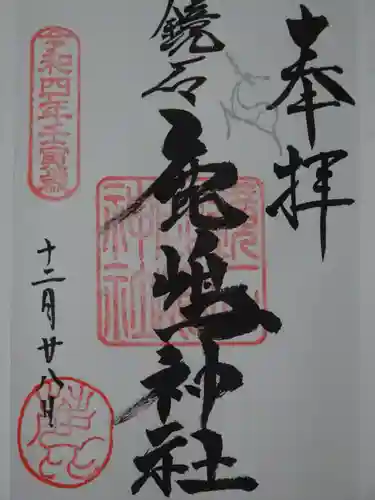 奉拝
鏡石
鹿嶋神社
令和四年壬寅歳
十二月廿八日